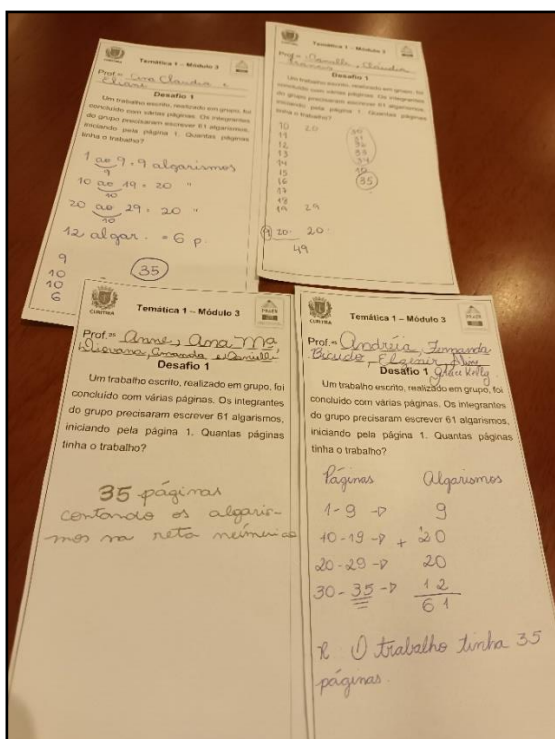 CURITIBA
Temática 1 – Módulo 3
Prof.ªs Ana Claudia e
Eliane
Desafio 1
Um trabalho escrito, realizado em grupo, foi
concluído com várias páginas. Os integrantes
do grupo precisaram escrever 61 algarismos,
iniciando pela página 1. Quantas páginas
tinha o trabalho?
1 ao 9 = 9 algarismos
9
10 ao 19 = 20 "
10
20 ao 29 = 20 "
10
12 algar. = 6 p.
9
10
10
6
35
CURITIBA
Temática 1 – Módulo 3
Desafio 1
Um trabalho escrito, realizado em grupo, foi
concluído com várias páginas. Os integrantes
do grupo precisaram escrever 61 algarismos,
iniciando pela página 1. Quantas páginas
tinha o trabalho?
10 20
11
12
13
14
15
16 35
17
18
19 29
9 20 20
49
CURITIBA
Temática 1 – Módulo 3
Prof.ªs Anne, Ana Mª
Giovana, Amanda e Danielli
Desafio 1
Um trabalho escrito, realizado em grupo, foi
concluído com várias páginas. Os integrantes
do grupo precisaram escrever 61 algarismos,
iniciando pela página 1. Quantas páginas
tinha o trabalho?
35 páginas
contando os algaris-
mos na reta numérica
CURITIBA
Temática 1 – Módulo 3
Prof.ªs Andréia, Fernanda
Bicudo, Elzenir, Aline
Desafio 1 Grace Kelly
Um trabalho escrito, realizado em grupo, foi
concluído com várias páginas. Os integrantes
do grupo precisaram escrever 61 algarismos,
iniciando pela página 1. Quantas páginas
tinha o trabalho?
Páginas Algarismos
1-9 → 9
10-19 → + 20
20-29 → 20
30-35 → 12
61
R: O trabalho tinha 35
páginas.